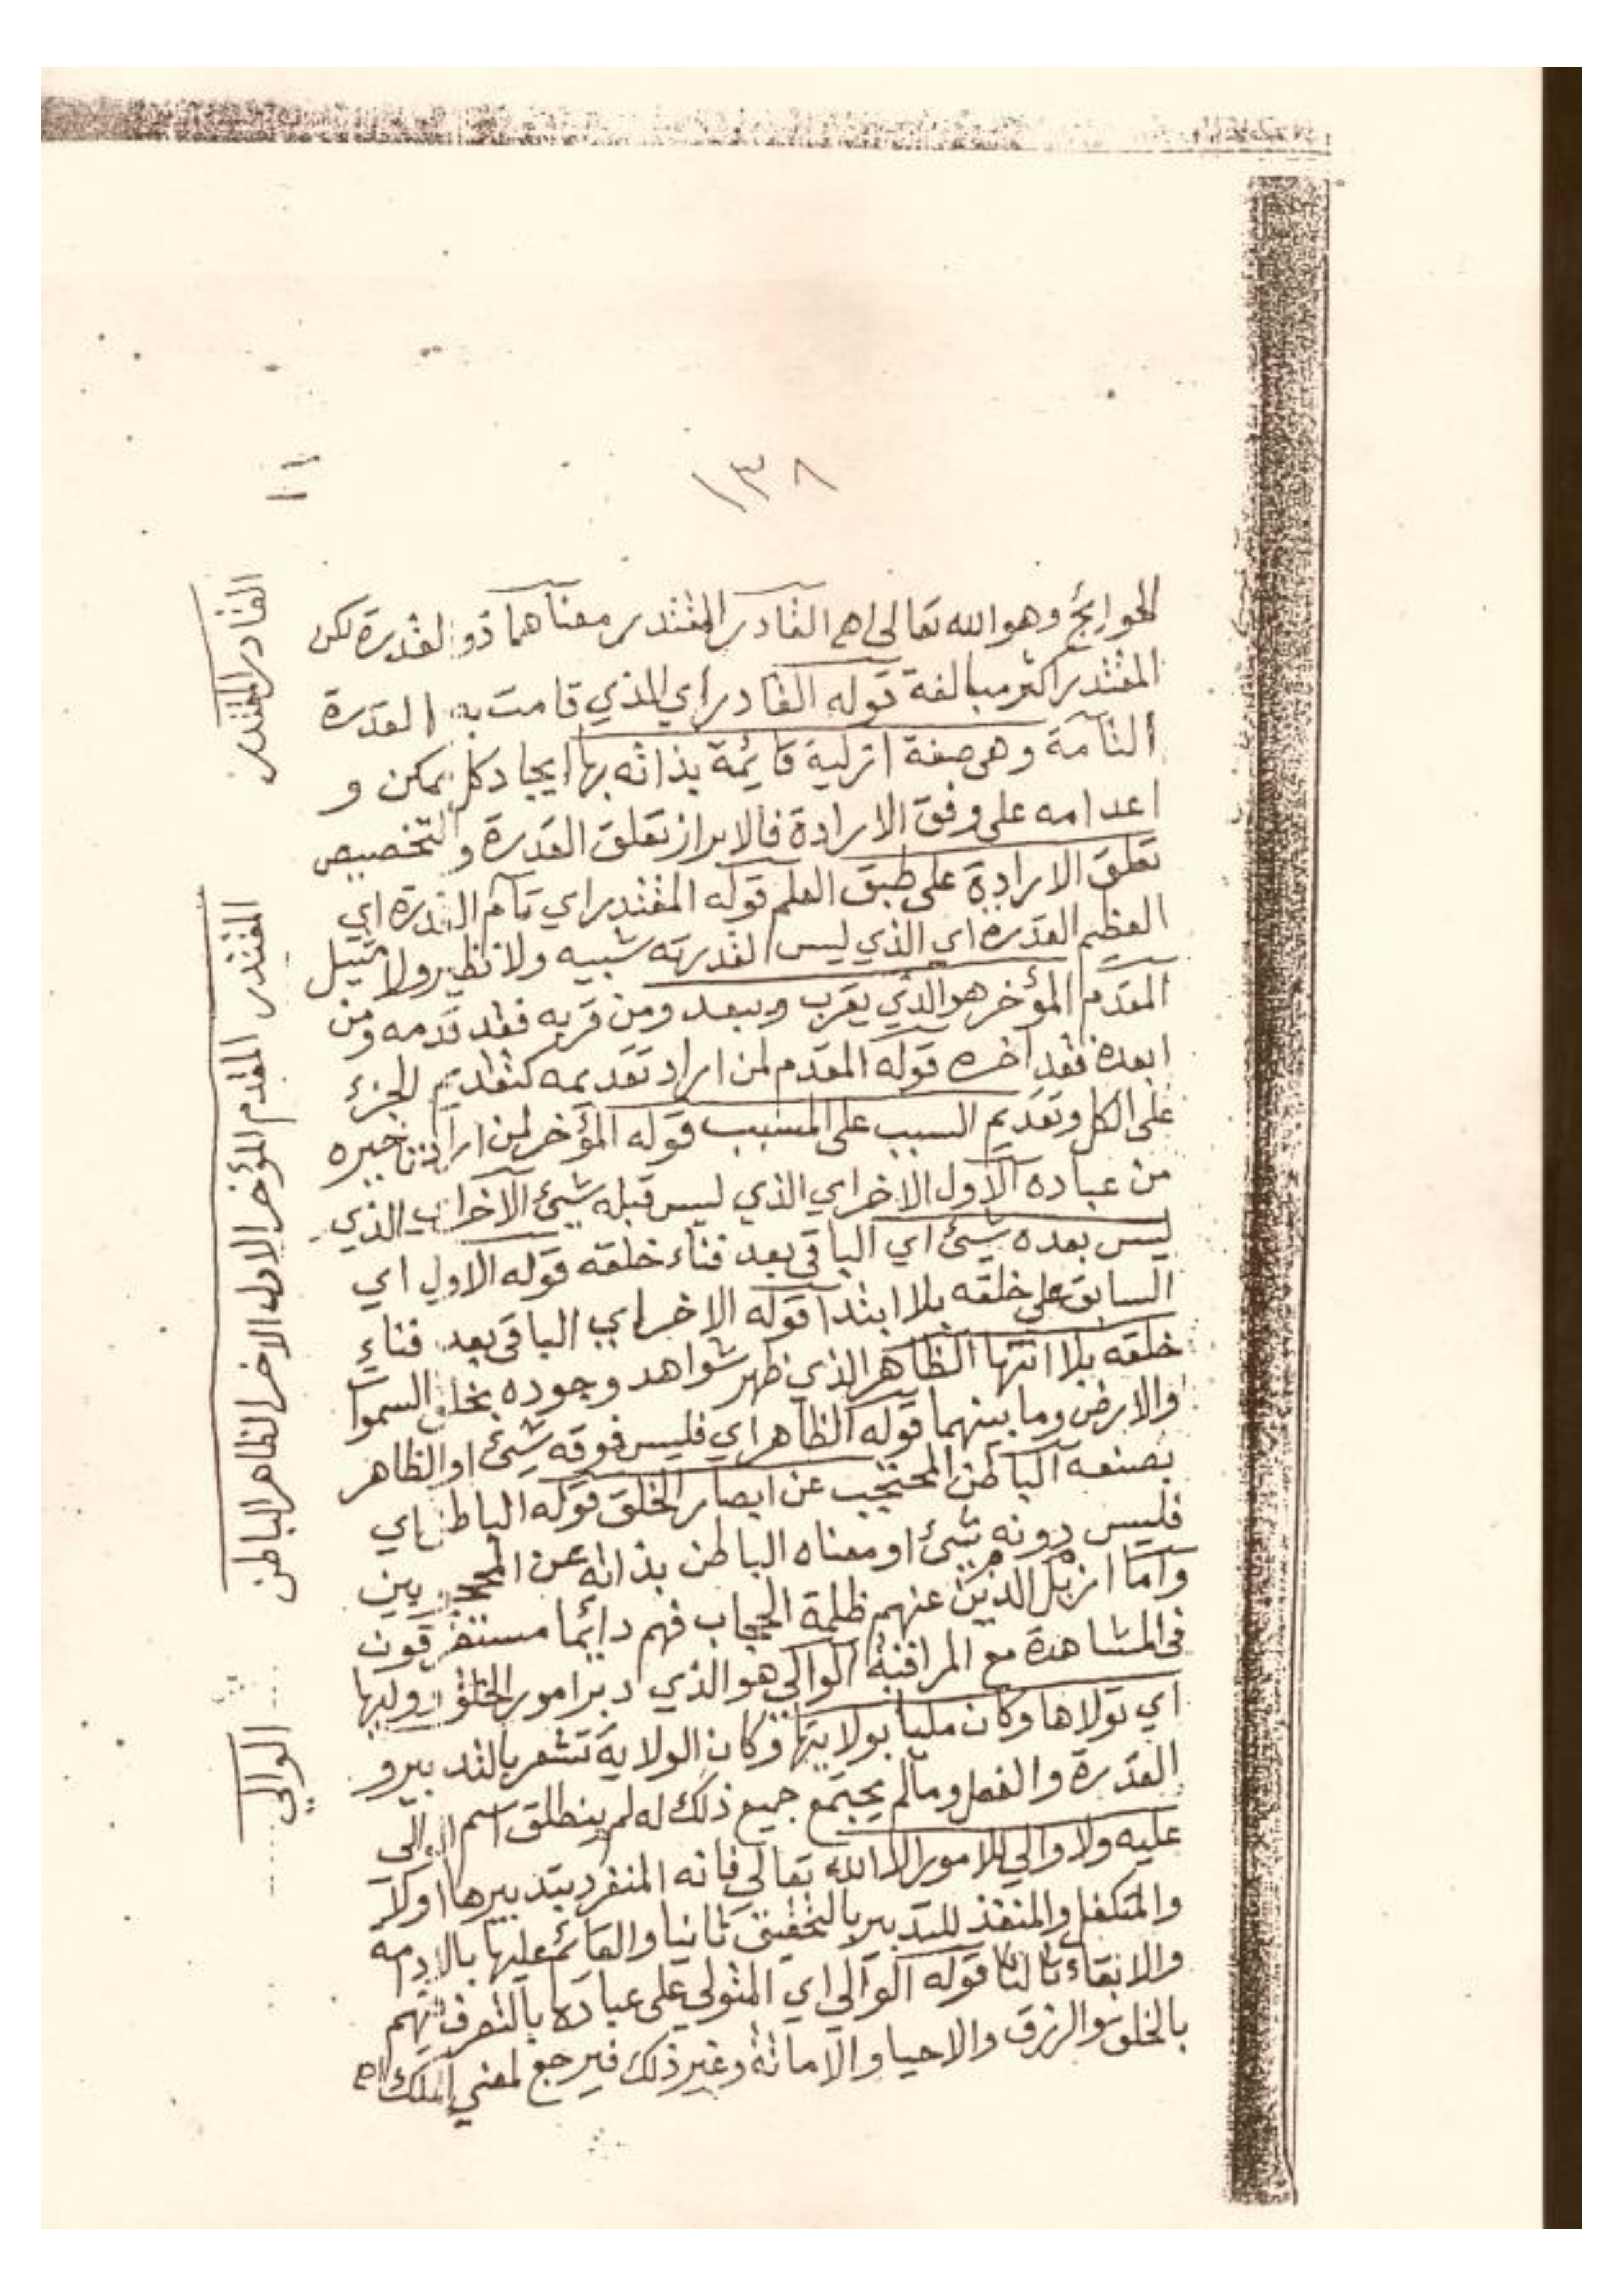 ١٣٨
١١
الحوائج وهو الله تعالى اهـ القادر المقتدر معناهما ذو القدرة لكن
المقتدر اكثر مبالغة قوله القادر اي الذي قامت به القدرة
التامة وهي صفة ازلية قائمة بذاته بها ايجاد كل ممكن و
اعدامه على وفق الارادة فالابراز تعلق القدرة والتخصيص
تعلق الارادة على طبق العلم قوله المقتدر اي تام القدرة اي
العظيم القدرة اي الذي ليس لقدرته شبيه ولا نظير ولا مثيل
المقدم المؤخر هو الذي يقرب ويبعد ومن قربه فقد قدمه ومن
ابعده فقد اخره قوله المقدم لمن اراد تقديمه كتقديم الجزء
على الكل وتقديم السبب على المسبب قوله المؤخر لمن اراد تاخيره
من عباده الاول الاخر اي الذي ليس قبله شيئ الآخر اي الذي
ليس بعده شيئ اي الباقي بعد فناء خلقه قوله الاول اي
السابق على خلقه بلا ابتدا قوله الاخر اي الباقي بعد فناء
خلقه بلا انتها الظاهر الذي ظهر شواهد وجوده بخلق السموا
والارض وما بينهما قوله الظاهر اي فليس فوقه شيئ او الظاهر
بصنعه الباطن المحتجب عن ابصار الخلق قوله الباطن اي
فليس دونه شيئ او معناه الباطن بذاته عن المحجوبين
واما ازيل الذين عنهم ظلمة الحجاب فهم دائما مستغرقون
في المشاهدة مع المراقبة الوالي هو الذي دبر امور الخلق ووليها
اي تولاها وكان مليا بولايتها وكان الولاية تشعر بالتدبير و
القدرة والفعل وما لم يجتمع جميع ذلك له لم ينطلق اسم الوالي
عليه ولا والي للامور الا الله تعالى فانه المنفرد بتدبيرها اولا
والمتكفل والمنفذ للتدبير بالتحقيق ثانيا والقائم عليها بالادامة
والابقاء ثالثا قوله الوالي اي المتولي على عباده بالتصرف فيهم
بالخلق والرزق والاحيا والاماتة وغير ذلك فيرجع لمعني الملك اهـ
القادر المقتدر
المقتدر المقدم المؤخر الاول الاخر الظاهر الباطن
الوالي